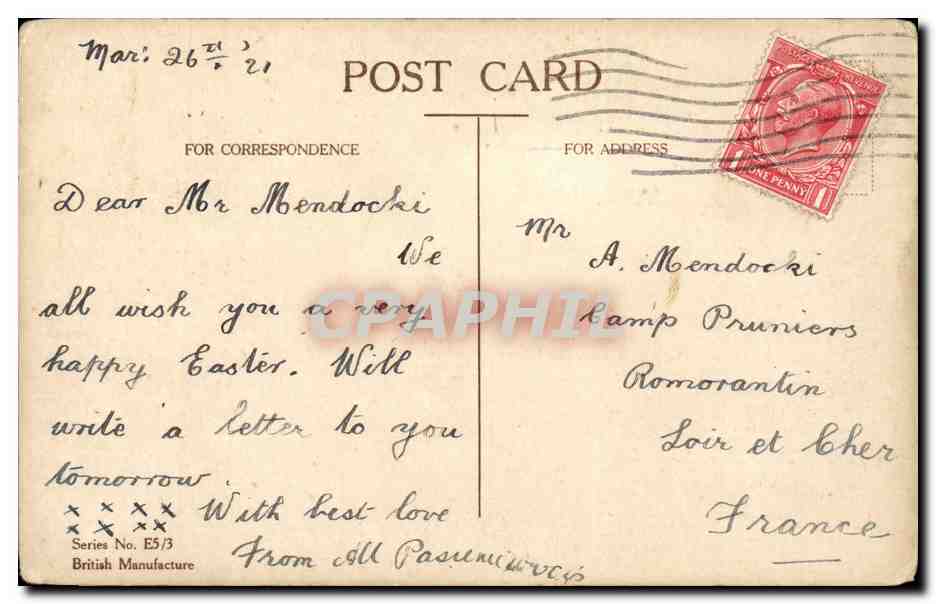 Mar: 26th '21
POST CARD
FOR CORRESPONDENCE
Dear Mr Mendocki
We
all wish you a very
happy Easter. Will
write a letter to you
tomorrow.
x x x x With best love
x x x x
From All
Series No. E5/3
British Manufacture
FOR ADDRESS
Mr
A. Mendocki
Camp Pruniers
Romorantin
Loir et Cher
France
POSTAGE REVENUE
1 ONE PENNY 1
CPAPHIL